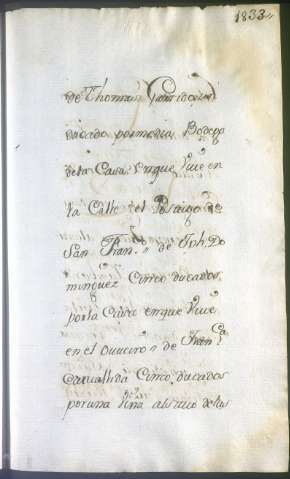 1833
de Thomas
ducado por media Bodega
de la Casa enque Vive en
la Calle el Postigo de
San Fran.co de Jph. Do
minguez Cinco ducados
por la Casa enque Vive
en el de Fran.ca
Carvallida Cinco ducados
por una Viña al sitio de las